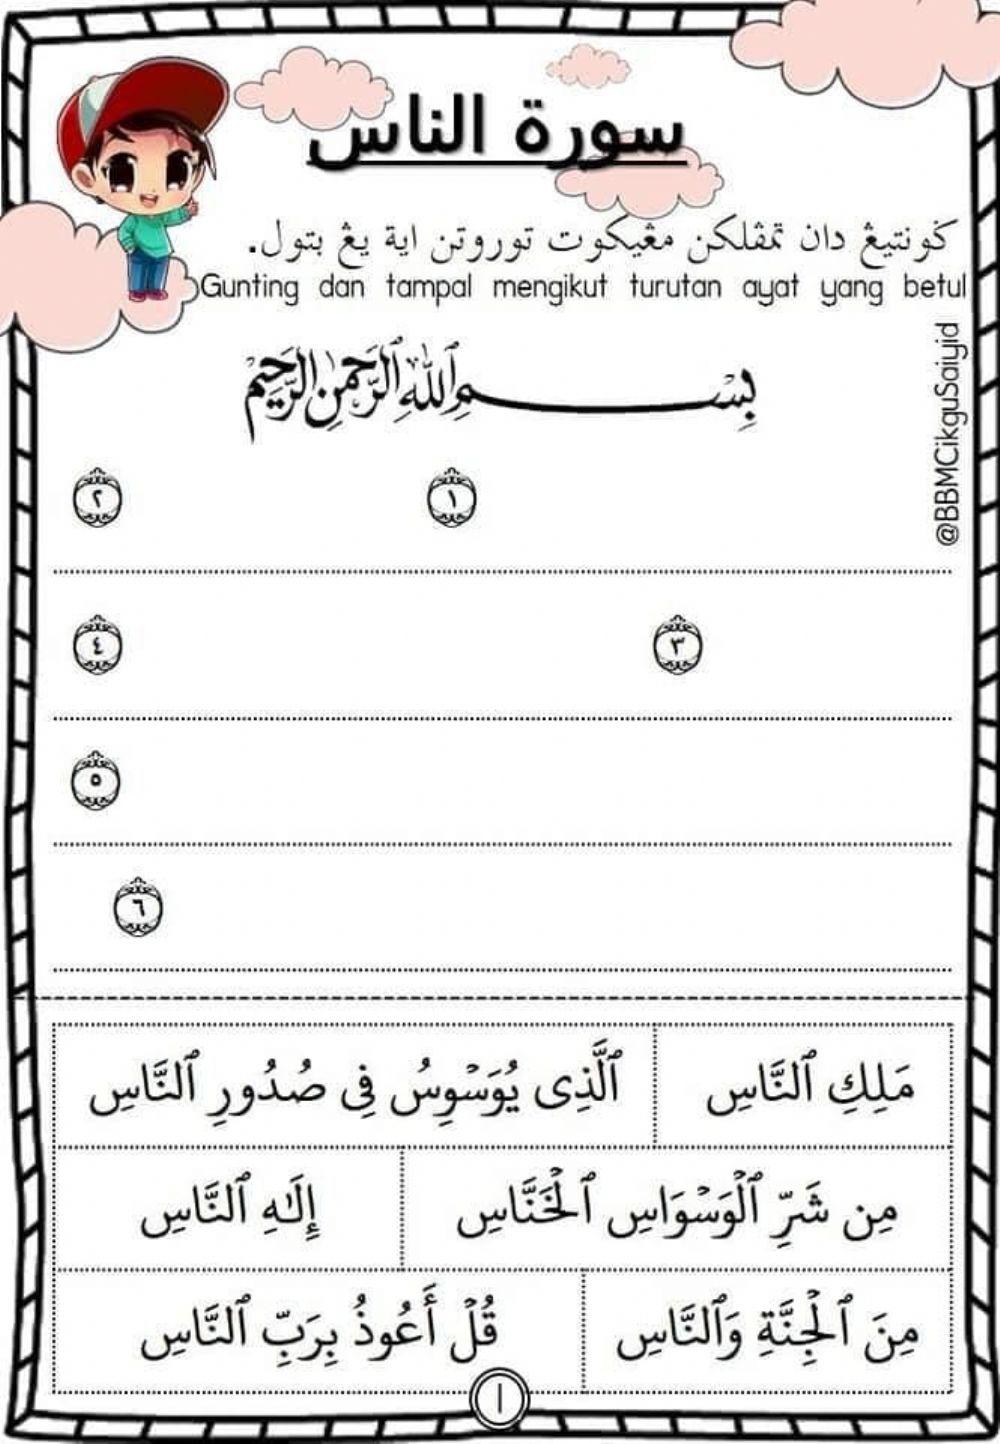 سورة الناس
ݢونتيڠ دان تمڤلکن مڠيکوت توروتن اية يڠ بتول.
Gunting dan tampal mengikut turutan ayat yang betul
@BBMCikguSaiyid
بِسْمِ ٱللَّهِ ٱلرَّحْمَٰنِ ٱلرَّحِيمِ
١ ٢
٣ ٤
٥
٦
مَلِكِ ٱلنَّاسِ ٱلَّذِى يُوَسْوِسُ فِى صُدُورِ ٱلنَّاسِ
مِن شَرِّ ٱلْوَسْوَاسِ ٱلْخَنَّاسِ إِلَٰهِ ٱلنَّاسِ
مِنَ ٱلْجِنَّةِ وَٱلنَّاسِ قُلْ أَعُوذُ بِرَبِّ ٱلنَّاسِ
١